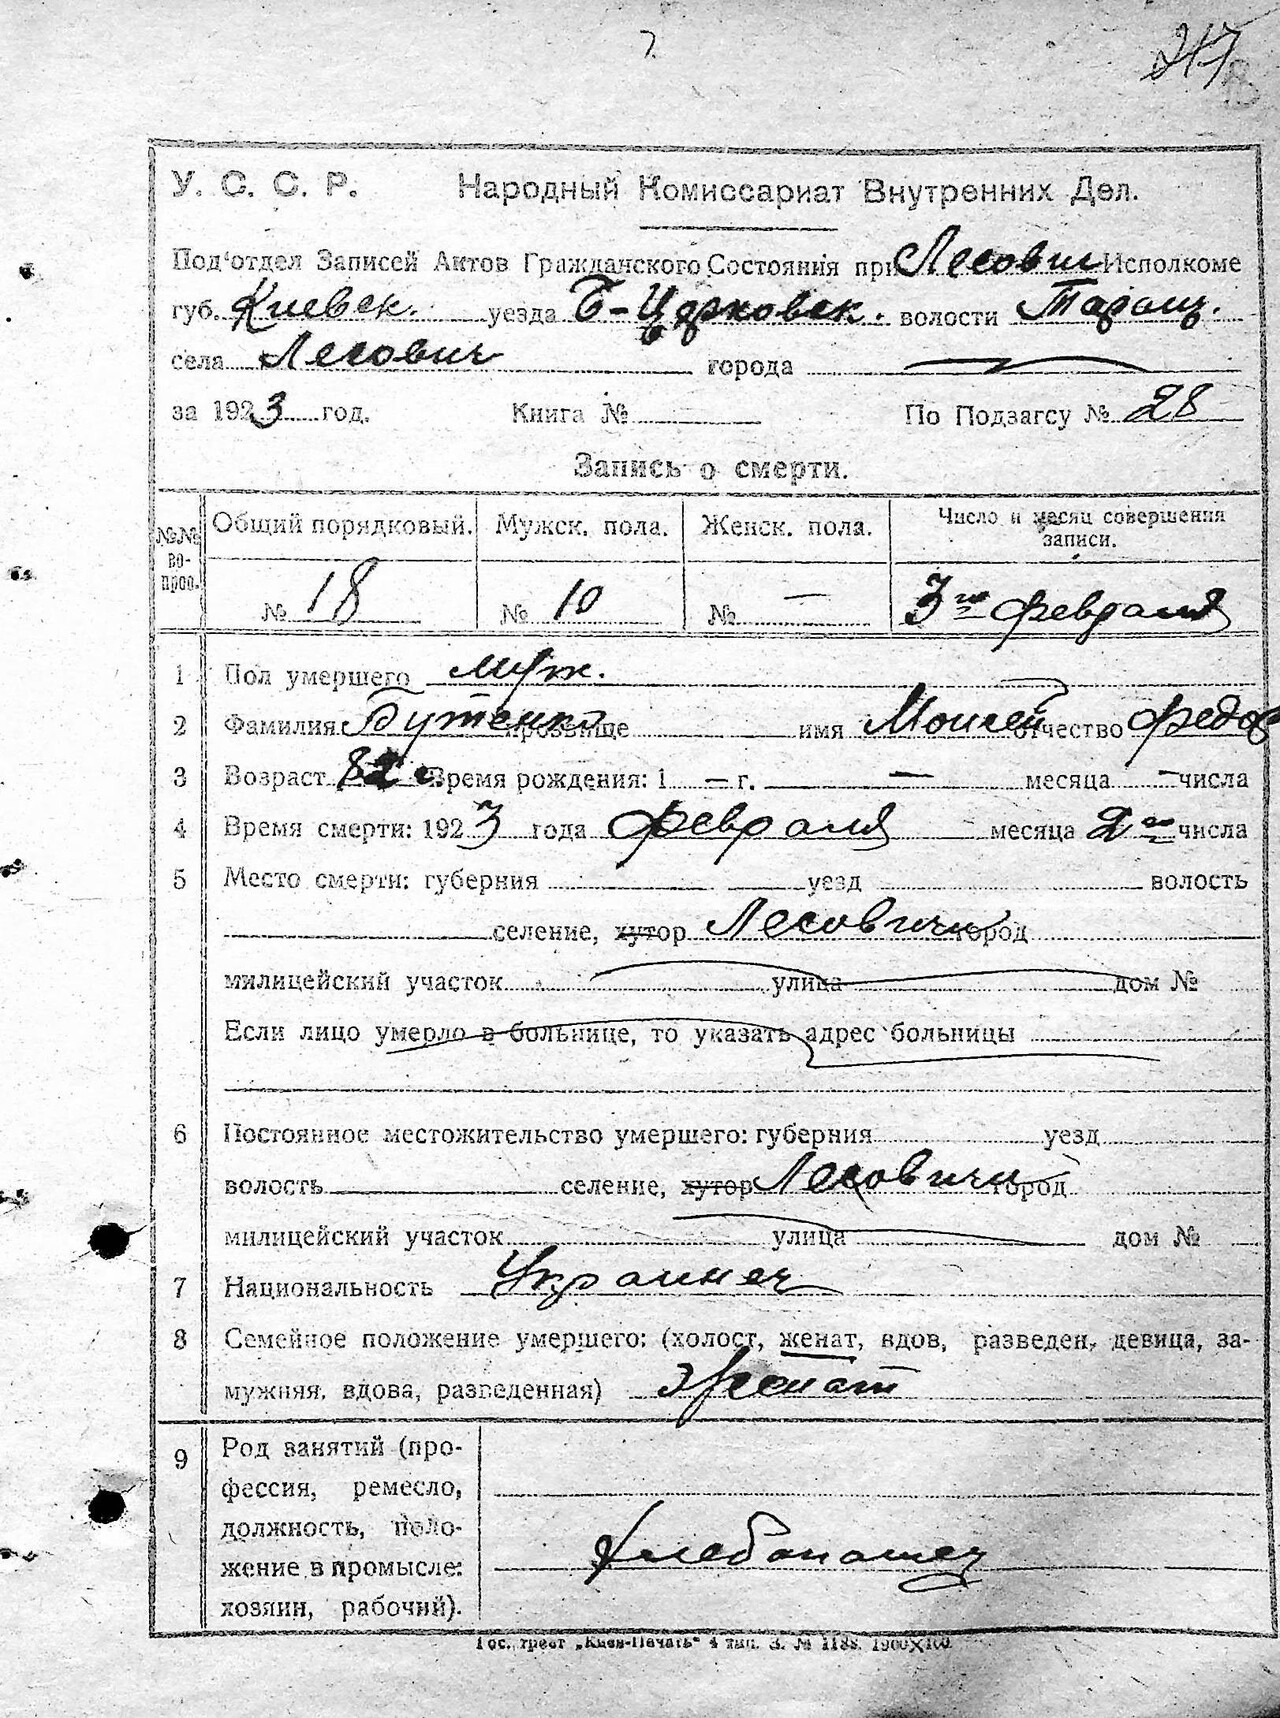 217
У. С. С. Р. Народный Комиссариат Внутренних Дел.
Под'отдел Записей Актов Гражданского Состояния при Лесович Исполкоме
губ. Киевск. уезда Б-Церковск. волости Таращ.
села Лесович города
за 1923 год. Книга № По Подзагсу № 28
Запись о смерти.
№№ вопрос. Общий порядковый. Мужск. пола. Женск. пола. Число и месяц совершения записи.
№ 18 № 10 № — 3го февраля
1 Пол умершего муж.
2 Фамилия Бутенко прозвище имя Моисей отчество Федор
3 Возраст 82 Время рождения: 1 — г. — месяца — числа
4 Время смерти: 1923 года февраля месяца 2го числа
5 Место смерти: губерния уезд волость
селение, хутор Лесовичи город
милицейский участок улица дом №
Если лицо умерло в больнице, то указать адрес больницы
6 Постоянное местожительство умершего: губерния уезд
волость селение, хутор Лесовичи город
милицейский участок улица дом №
7 Национальность Украинец
8 Семейное положение умершего: (холост, женат, вдов, разведен, девица, за-
мужняя, вдова, разведенная) женат
9 Род занятий (про-
фессия, ремесло,
должность, поло-
жение в промысле:
хозяин, рабочий).
Хлебопашец
Гос. трест „Киев-Печать“ 4 тип. З. № 1188. 1900×100.